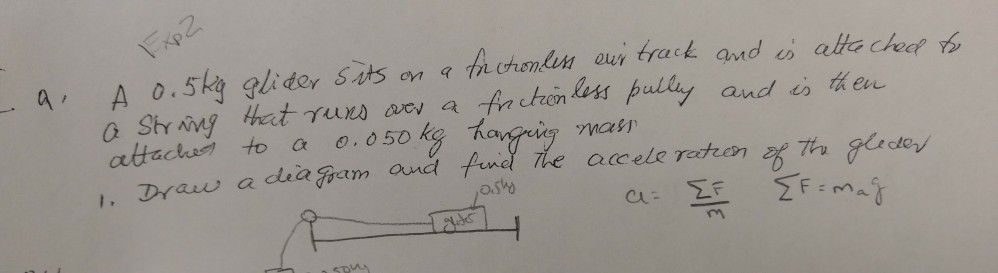 Exp2
a. A 0.5kg glider sits on a frictionless air track and is attached to
a string that runs over a frictionless pully and is then
attached to a 0.050 kg hanging mass
1. Draw a diagram and find the acceleration of the glider
0.5kg
a = ΣF/m ΣF = mag
glider